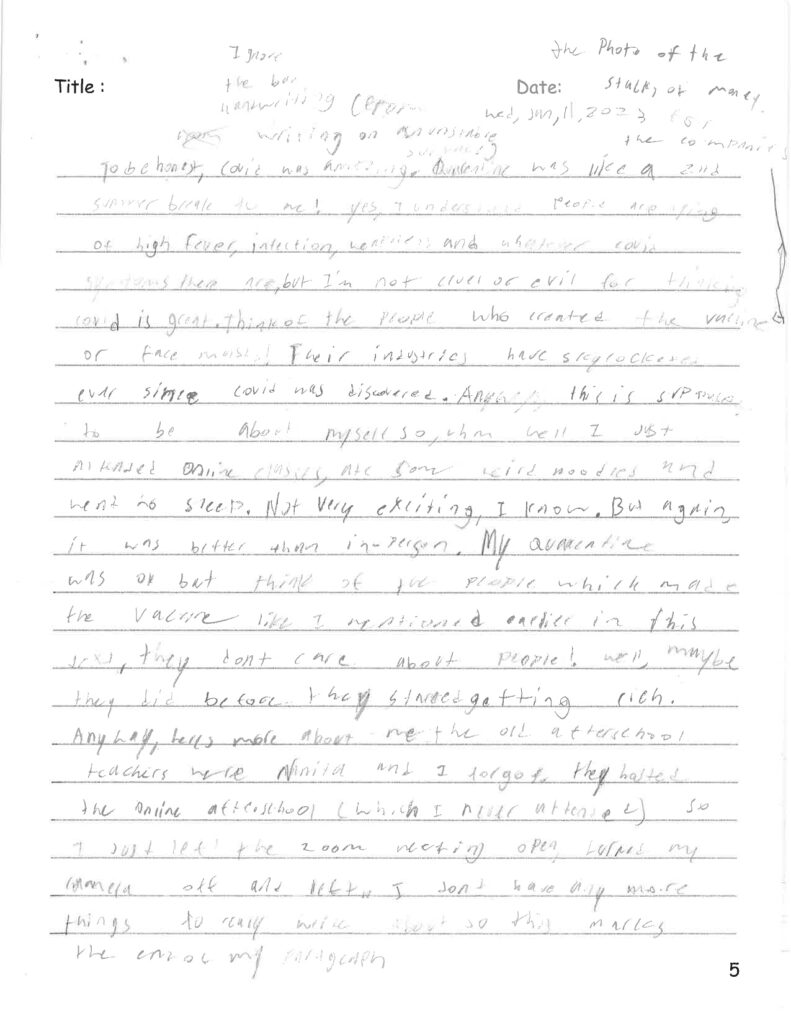 I gnore
the bad
handwriting
writing on an
Title :
Date:
wed, Jan, 11, 2023
the Photo of the
stacks of money.
for
the companies
To be honest, Covid was amazing. Quarentine was like a 2nd
summer break to me! yes, I understand People are dying
of high fever, infection, and whatever covid
symptoms there are, but I'm not cruel or evil for thinking
covid is great. Think of the People who created the vaccine
or face masks! Their industries have skyrocketed
ever since covid was discovered. Anyway, this is
to be about myself so, uhm well I just
attended online classes, ate some weird noodles and
went to sleep. Not very exciting, I know. But again,
it was better than in-person. My quarentine
was ok but think of the people which made
the vaccine like I mentioned earlier in this
text, they dont care about people! well, maybe
they did before they started getting rich.
Anyway, heres more about me the old afterschool
teachers were and I forgot. they hosted
the online afterschool (which I never attended) so
I just left the zoom meeting open, turned my
camera off and left. I dont have any more
things to really write about so this marks
the end of my paragraph
5